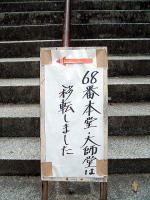 68番本堂・大師堂は
移転しました